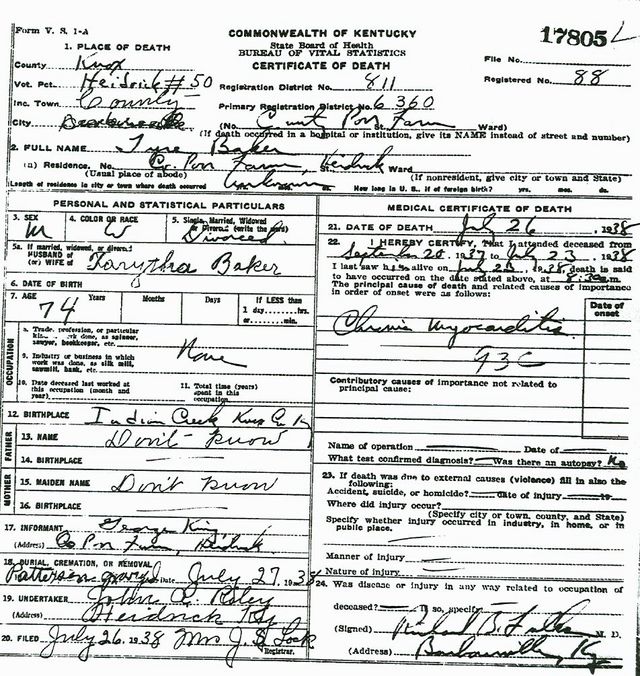 Form V. S. 1-A
COMMONWEALTH OF KENTUCKY
State Board of Health
BUREAU OF VITAL STATISTICS
CERTIFICATE OF DEATH
17805
File No.
Registered No. 88
1. PLACE OF DEATH
County Knox
Vot. Pct. Heidrick #50
Inc. Town County
City
Registration District No. 811
Primary Registration District No. 6360
(No. Count Poor Farm St. Ward)
(If death occurred in a hospital or institution, give its NAME instead of street and number)
2. FULL NAME Tyre Baker
(a) Residence. No. Co. Poor Farm, Heidrick St. Ward
(Usual place of abode) (If nonresident, give city or town and State)
Length of residence in city or town where death occurred Unknown How long in U. S., if of foreign birth? yrs. mos. ds.
PERSONAL AND STATISTICAL PARTICULARS
3. SEX M
4. COLOR OR RACE W
5. Single, Married, Widowed or Divorced (write the word) Divorced
5a. If married, widowed, or divorced
HUSBAND of
(or) WIFE of Baker
6. DATE OF BIRTH
7. AGE 74 Years Months Days If LESS than 1 day......hrs. or......min.
OCCUPATION
8. Trade, profession, or particular kind of work done, as spinner, sawyer, bookkeeper, etc.
9. Industry or business in which work was done, as silk mill, sawmill, bank, etc. None
10. Date deceased last worked at this occupation (month and year)
11. Total time (years) spent in this occupation
12. BIRTHPLACE Indian Creek Knox Co Ky
FATHER
13. NAME Don't Know
14. BIRTHPLACE
MOTHER
15. MAIDEN NAME Don't Know
16. BIRTHPLACE
17. INFORMANT George King
(Address) Co Poor Farm, Heidrick
18. BURIAL, CREMATION, OR REMOVAL
Patterson Date July 27, 1938
19. UNDERTAKER John
(Address) Heidrick Ky
20. FILED July 26, 1938 Mrs J. S. Lock
Registrar.
MEDICAL CERTIFICATE OF DEATH
21. DATE OF DEATH July 26, 1938
22. I HEREBY CERTIFY, That I attended deceased from
September 20, 1937 to July 23, 1938
I last saw him alive on July 23, 1938, death is said
to have occurred on the date stated above, at 8:30 a.m.
The principal cause of death and related causes of importance in order of onset were as follows:
Date of onset
Chronic Myocarditis
93C
Contributory causes of importance not related to principal cause:
Name of operation Date of
What test confirmed diagnosis? Was there an autopsy? No
23. If death was due to external causes (violence) fill in also the following:
Accident, suicide, or homicide? date of injury 19
Where did injury occur?
(Specify city or town, county, and State)
Specify whether injury occurred in industry, in home, or in public place.
Manner of injury
Nature of injury
24. Was disease or injury in any way related to occupation of
deceased? If so, specify
(Signed) B. M. D.
(Address) Barbourville, Ky